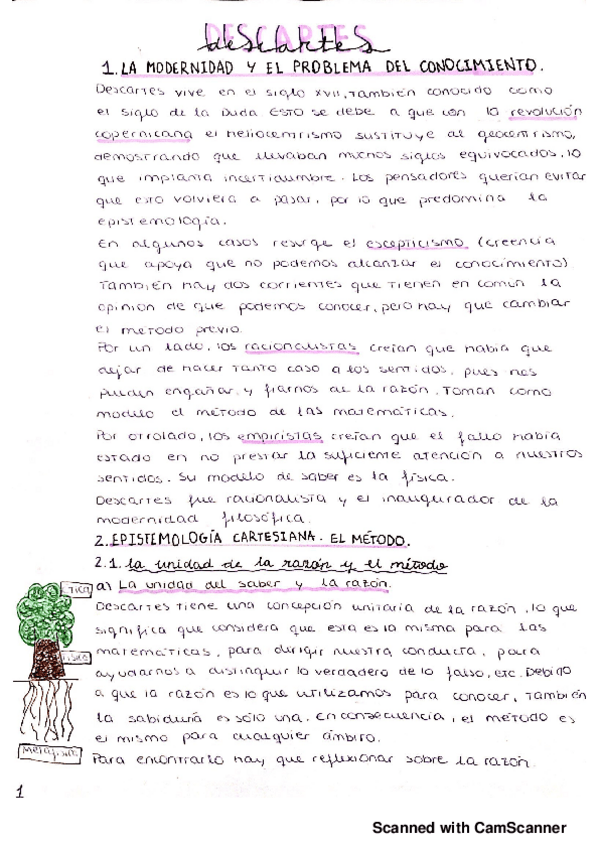 DESCARTES
descartes
1. LA MODERNIDAD Y EL PROBLEMA DEL CONOCIMIENTO.
Descartes vive en el siglo XVII, también conocido como
el siglo de la Duda Esto se debe a que con la revolución
copernicana el heliocentrismo sustituye al geocentrismo,
demostrando que llevaban muchos siglos equivocados, lo
que implanta incertidumbre. Los pensadores querían evitar
que esto volviera a pasar, por lo que predomina la
epistemología.
En algunos casos resurge el escepticismo (creencia
que apoya que no podemos alcanzar el conocimiento)
También hay dos corrientes que tienen en común la
opinión de que podemos conocer, pero hay que cambiar
el método previo.
Por un lado, los racionalistas creían que había que
dejar de hacer tanto caso a los sentidos, pues nos
pueden engañar, y fiarnos de la razón. Toman como
modelo el método de las matemáticas.
Por otro lado, los empiristas creían que el fallo había
estado en no prestar la suficiente atención a nuestros
sentidos. Su modelo de saber es la física.
Descartes fue racionalista y el inaugurador de la
modernidad filosófica.
2. EPISTEMOLOGÍA CARTESIANA. EL MÉTODO.
2.1. la unidad de la razón y el método
a) La unidad del saber y la razón.
Descartes tiene una concepción unitaria de la razón, lo que
significa que considera que esta es la misma para las
matemáticas, para dirigir nuestra conducta, para
ayudarnos a distinguir lo verdadero de lo falso, etc. Debido
a que la razón es lo que utilizamos para conocer, también
la sabiduría es sólo una. En consecuencia, el método es
el mismo para cualquier ámbito.
Para encontrarlo hay que reflexionar sobre la razón.
1
Scanned with CamScanner